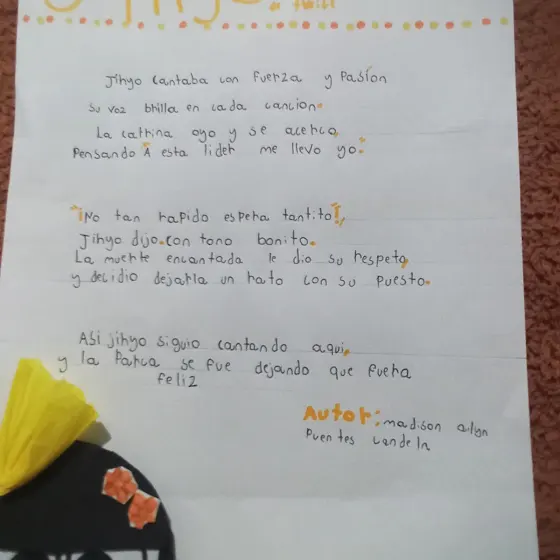 Jihyo
Jihyo cantaba con fuerza y Pasíon
su voz brilla en cada cancion.
La catrina oyo y se acerco,
Pensando "A esta lider me llevo yo".
"¡No tan rapido espera tantito!",
Jihyo dijo.con tono bonito.
La muerte encantada le dio su respeto,
y decidio dejarla un rato con su puesto.
Asi jihyo siguio cantando aqui,
y la Parca se fue dejando que fuera
feliz
Autor: madison ailyn
Puentes candela